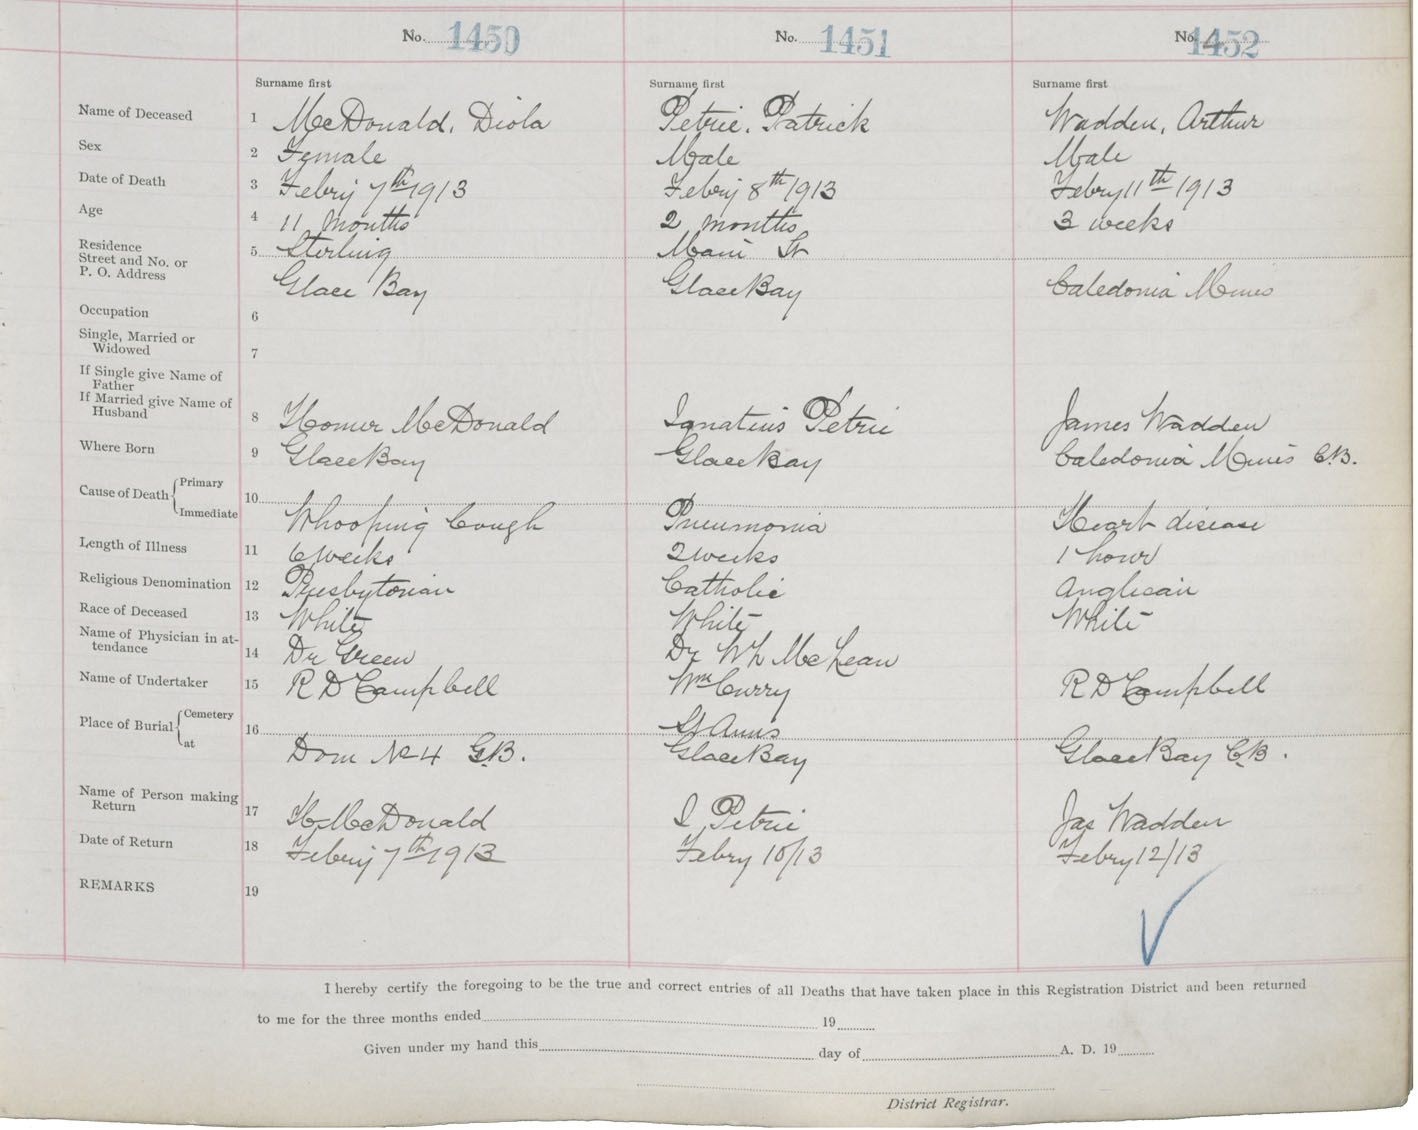 No. 1450 No. 1451 No. 1452
Surname first Surname first Surname first
Name of Deceased 1 McDonald, Diola Petrie, Patrick Wadden, Arthur
Sex 2 Female Male Male
Date of Death 3 Febry 7th 1913 Febry 8th 1913 Febry 11th 1913
Age 4 11 months 2 months 3 weeks
Residence 5 Sterling Main St
Street and No. or
P. O. Address Glace Bay Glace Bay Caledonia Mines
Occupation 6
Single, Married or
Widowed 7
If Single give Name of
Father
If Married give Name of
Husband 8 Homer McDonald Ignatius Petrie James Wadden
Where Born 9 Glace Bay Glace Bay Caledonia Mines C.B.
Primary
Cause of Death 10
Immediate Whooping Cough Pneumonia Heart disease
Length of Illness 11 6 weeks 2 weeks 1 hour
Religious Denomination 12 Presbytorian Catholic Anglican
Race of Deceased 13 White White White
Name of Physician in at-
tendance 14 Dr Green Dr Wh McLean
Name of Undertaker 15 R D Campbell Wm Curry R D Campbell
Cemetery
Place of Burial 16 St Anns
at Dom No 4 G.B. Glace Bay Glace Bay C.B.
Name of Person making
Return 17 H McDonald I Petrie Jas Wadden
Date of Return 18 Febry 7th 1913 Febry 10/13 Febry 12/13
REMARKS 19
I hereby certify the foregoing to be the true and correct entries of all Deaths that have taken place in this Registration District and been returned
to me for the three months ended 19
Given under my hand this day of A. D. 19
District Registrar.